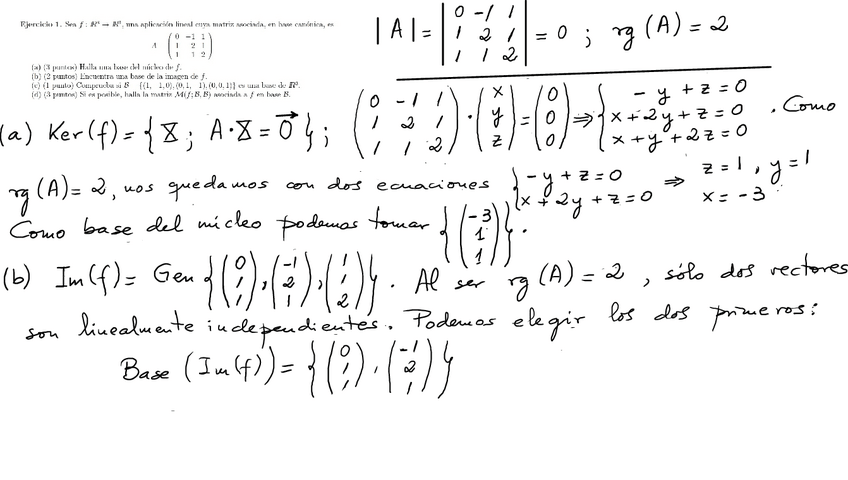 Ejercicio 1. Sea f : ℝ³ → ℝ³, una aplicación lineal cuya matriz asociada, en base canónica, es
A = ( 0 -1 1
1 2 1
1 1 2 )
(a) (3 puntos) Halla una base del núcleo de f.
(b) (2 puntos) Encuentra una base de la imagen de f.
(c) (1 punto) Comprueba si B = {(1, -1, 0), (0, 1, -1), (0, 0, 1)} es una base de ℝ³.
(d) (3 puntos) Si es posible, halla la matriz M(f; B, B) asociada a f en base B.
|A| = | 0 -1 1 ; 1 2 1 ; 1 1 2 | = 0 ; rg(A) = 2
(a) Ker(f) = { X ; A·X = 0⃗ } ; ( 0 -1 1 ; 1 2 1 ; 1 1 2 ) · ( x ; y ; z ) = ( 0 ; 0 ; 0 ) ⇒ { -y + z = 0 ; x + 2y + z = 0 ; x + y + 2z = 0 . Como
rg(A) = 2, nos quedamos con dos ecuaciones { -y + z = 0 ; x + 2y + z = 0 ⇒ z = 1, y = 1 ; x = -3
Como base del núcleo podemos tomar { ( -3 ; 1 ; 1 ) }.
(b) Im(f) = Gen { ( 0 ; 1 ; 1 ), ( -1 ; 2 ; 1 ), ( 1 ; 1 ; 2 ) }. Al ser rg(A) = 2, sólo dos vectores
son linealmente independientes. Podemos elegir los dos primeros:
Base (Im(f)) = { ( 0 ; 1 ; 1 ), ( -1 ; 2 ; 1 ) }